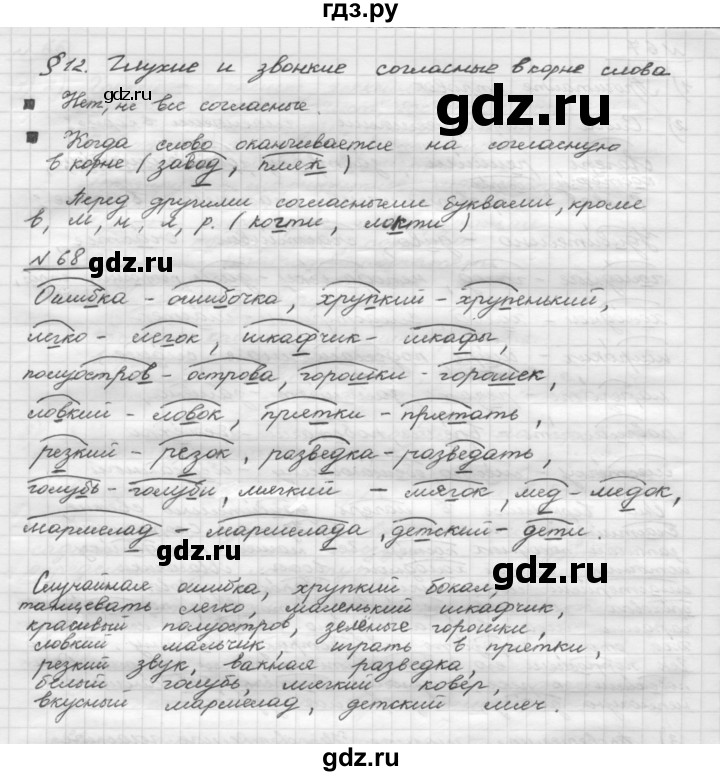 гдз.ру
§ 12. Глухие и звонкие согласные в корне слова
Нет, не все согласные.
gdz.ru
gdz.ru
Когда слово оканчивается на согласную
в корне (завод, пляж)
Перед другими согласными буквами, кроме
в, м, н, л, р. (когти, локти)
№ 68
gdz.ru
Ошибка - ошибочка, хрупкий - хрупенький,
легко - легок, шкафчик - шкафы,
полуостров - острова, горошки - горошек,
ловкий - ловок, прятки - прятать,
резкий - резок, разведка - разведать,
голубь - голуби, мягкий - мягок, мед - медок,
мармелад - мармелада, детский - дети.
gdz.ru
gdz.ru
Случайная ошибка, хрупкий бокал,
танцевать легко, маленький шкафчик,
красивый полуостров, зелёные горошки,
ловкий мальчик, играть в прятки,
резкий звук, важная разведка,
белый голубь, мягкий ковёр,
вкусный мармелад, детский мяч.
gdz.ru